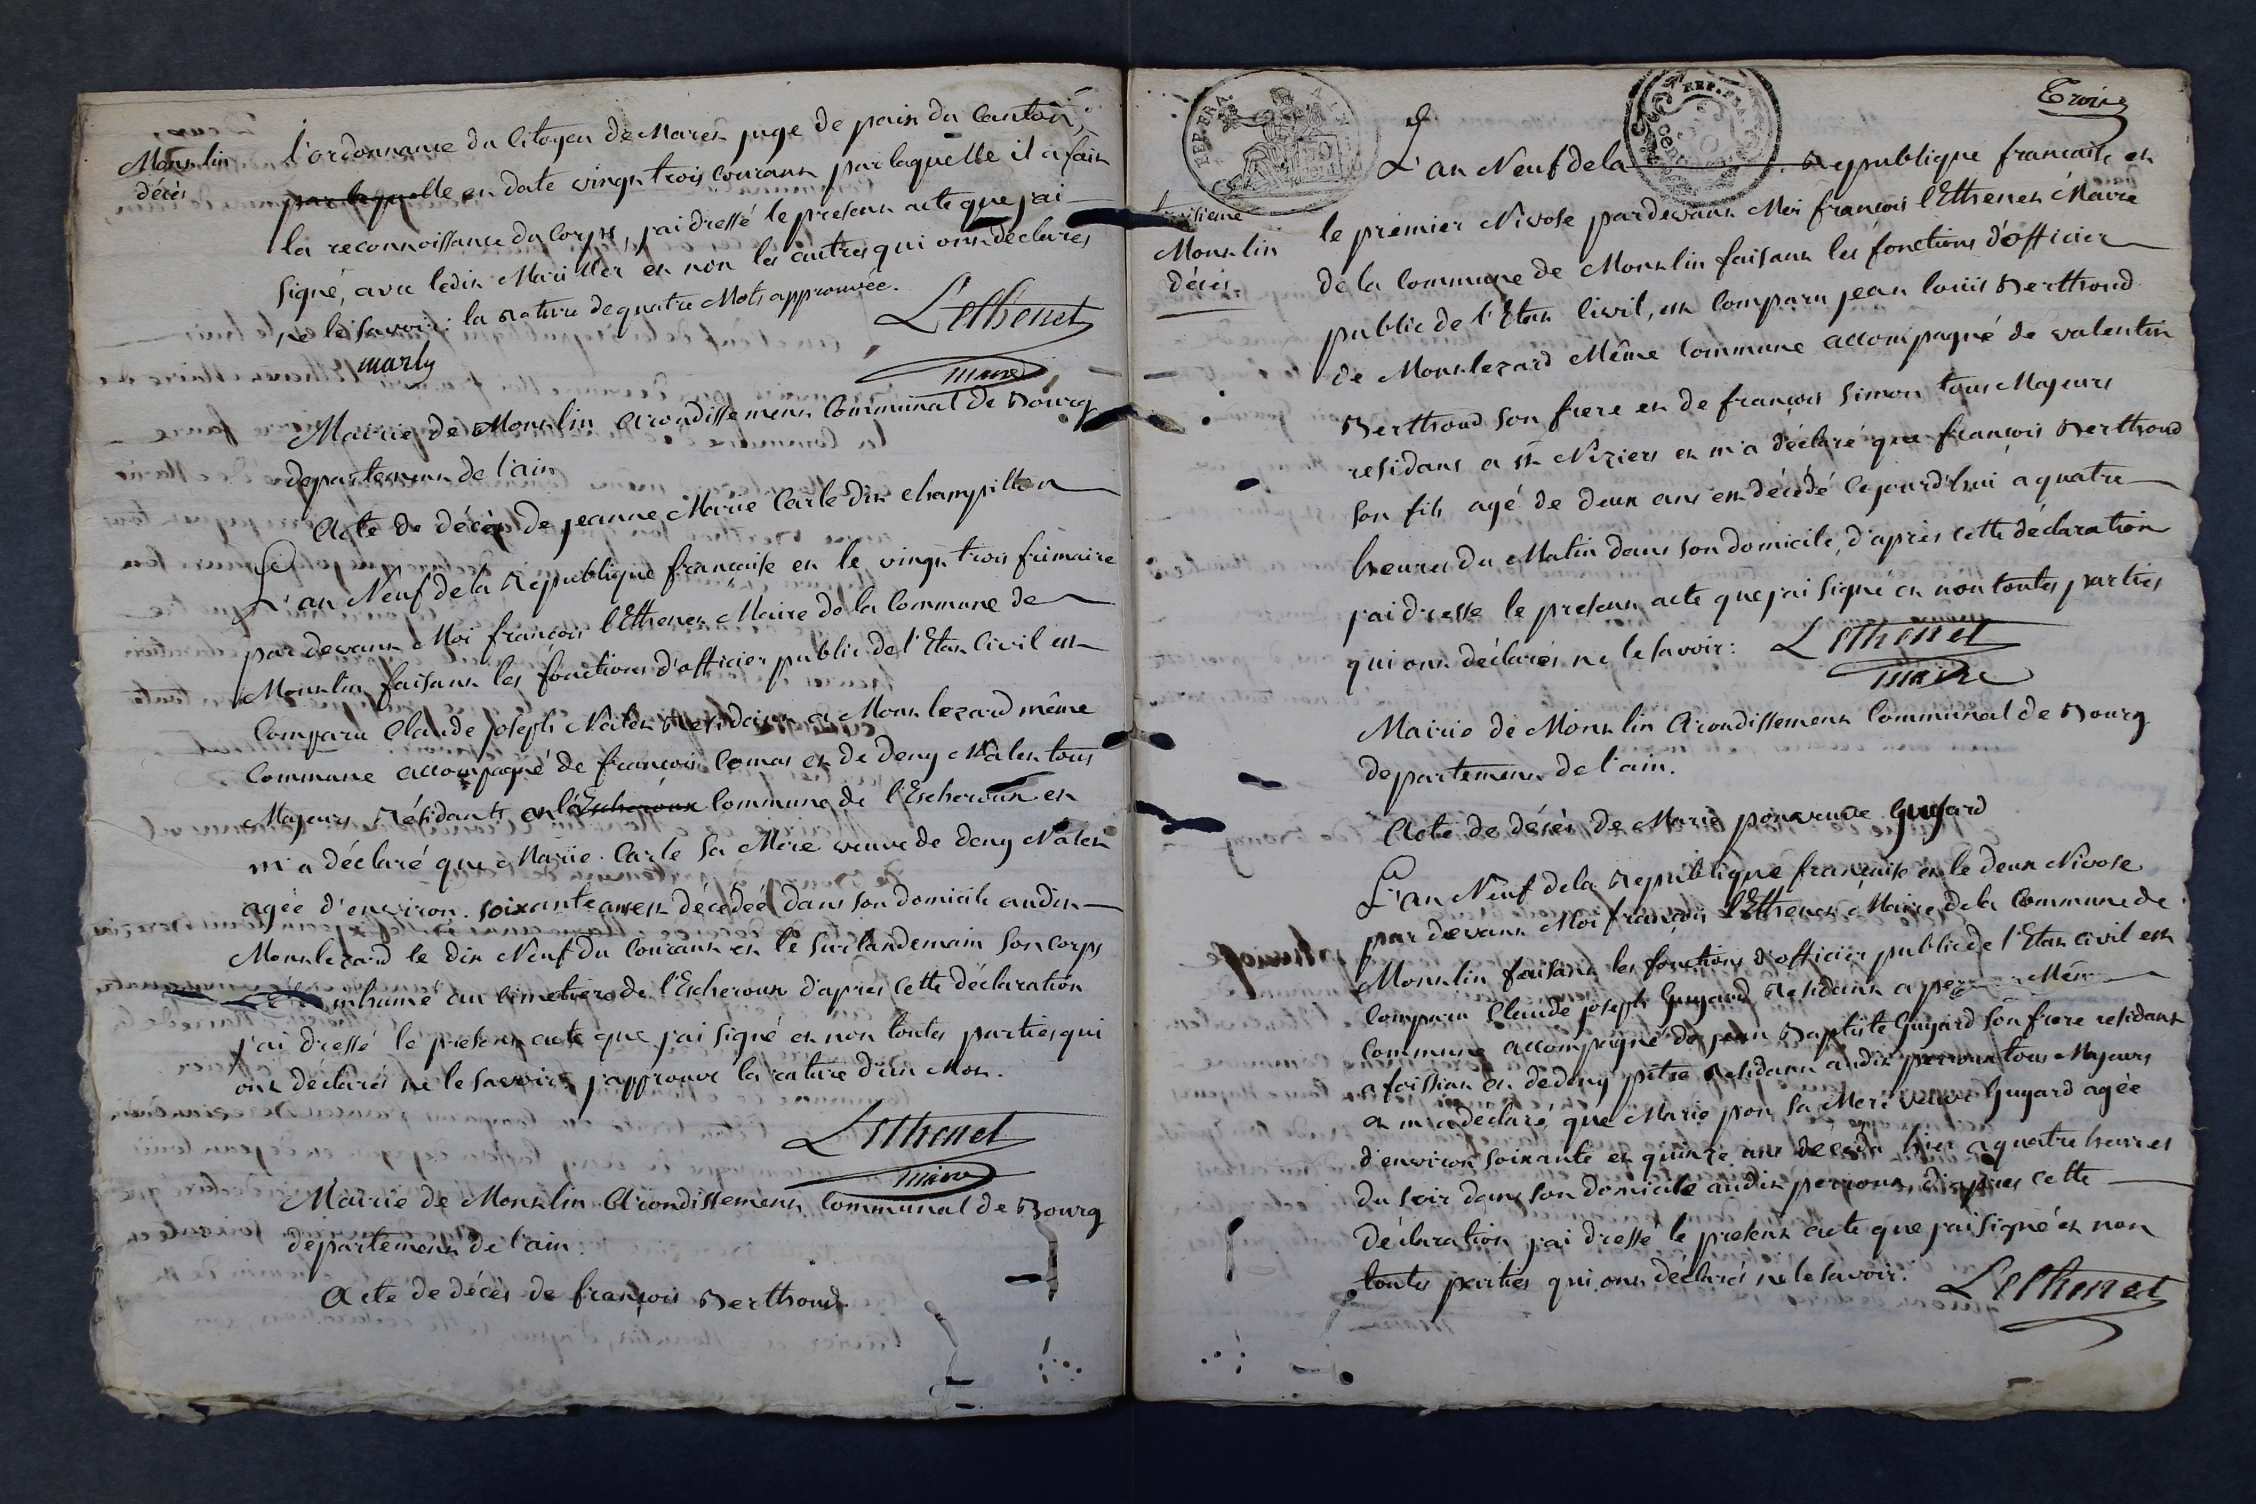 Montlin
décès
l'ordonnance du Citoyen de Maret juge de paix du Canton,
par laquelle en date vingt trois courant par laquelle il a fait
la reconnoissance du Corps, j'ai dressé le present acte que j'ai
signé, avec ledit Mariller et non les autres qui ont déclarés
ne le savoir: la rature de quatre Mots approuvée.
Lethenet
marly
maire
Mairie de Montlin Arondissement Communal de Bourg
departement de l'ain
Acte de décès de jeanne Marie Carle dit champillon
L'an Neuf de la Republique francaise et le vingt trois frimaire
par devant Moi françois l'Ethenet Maire de la Commune de
Montlin faisant les fonctions d'officier public de l'Etat Civil est
Comparu Claude joseph Nalet Residant a Montlezard même
Commune accompagné de francois Comas et de deny Nalet tous
Majeurs Résidants en l'Escheroux Commune de l'Escheroux et
m'a déclaré que Marie Carle sa Mere veuve de deny Nalet
agée d'environ soixante ans est décédée dans son domicile audit
Montlezard le dix Neuf du Courant et le surlandemain son Corps
inhumé au cimetiere de l'Escheroux d'apres cette déclaration
j'ai dressé le present acte que j'ai signé et non toutes parties qui
ont déclarés ne le savoir, j'approuve la rature d'un Mot.
Lethenet
maire
Mairie de Montlin Arondissement Communal de Bourg
departement de l'ain.
Acte de décès de françois Berthoud
Trois
REP. FRA.
REP. FRA.
Troisieme
Montlin
Décès
L'an Neuf de la Republique francaise et
le premier Nivose pardevant Moi francois l'Ethenet Maire
de la Commune de Montlin faisant les fonctions d'officier
public de l'Etat Civil, est Comparu jean louis Berthoud
de Montlezard Même Commune accompagné de valentin
Berthoud son frere et de françois Simon tous Majeurs
residant a st Niziers et m'a déclaré que francois Berthoud
son fils agé de deux ans est décédé cejourd'hui a quatre
heures du Matin dans son domicile, d'après cette déclaration
j'ai dressé le present acte que j'ai signé et non toutes parties
qui ont déclarés ne le savoir:
Lethenet
maire
Mairie de Montlin Arondissement Communal de Bourg
departement de l'ain.
Acte de décès de Marie pon veuve Guyard
L'an Neuf de la Republique francaise et le deux Nivose
par devant Moi françois l'Ethenet Maire de la Commune de
Montlin faisant les fonctions d'officier public de l'Etat civil est
Comparu Claude joseph Guyard Residant a Même
Commune accompagné de jean Baptiste Guyard son frere residant
a foissiat et de deny pitre Residant audit perroux tous Majeurs
et m'a déclaré que Marie pon sa Mere veuve Guyard agée
d'environ soixante et quinze ans décéda hier a quatre heures
du soir dans son domicile audit perroux, d'après cette
déclaration j'ai dressé le present acte que j'ai signé et non
toutes parties qui ont déclarés ne le savoir.
Lethenet